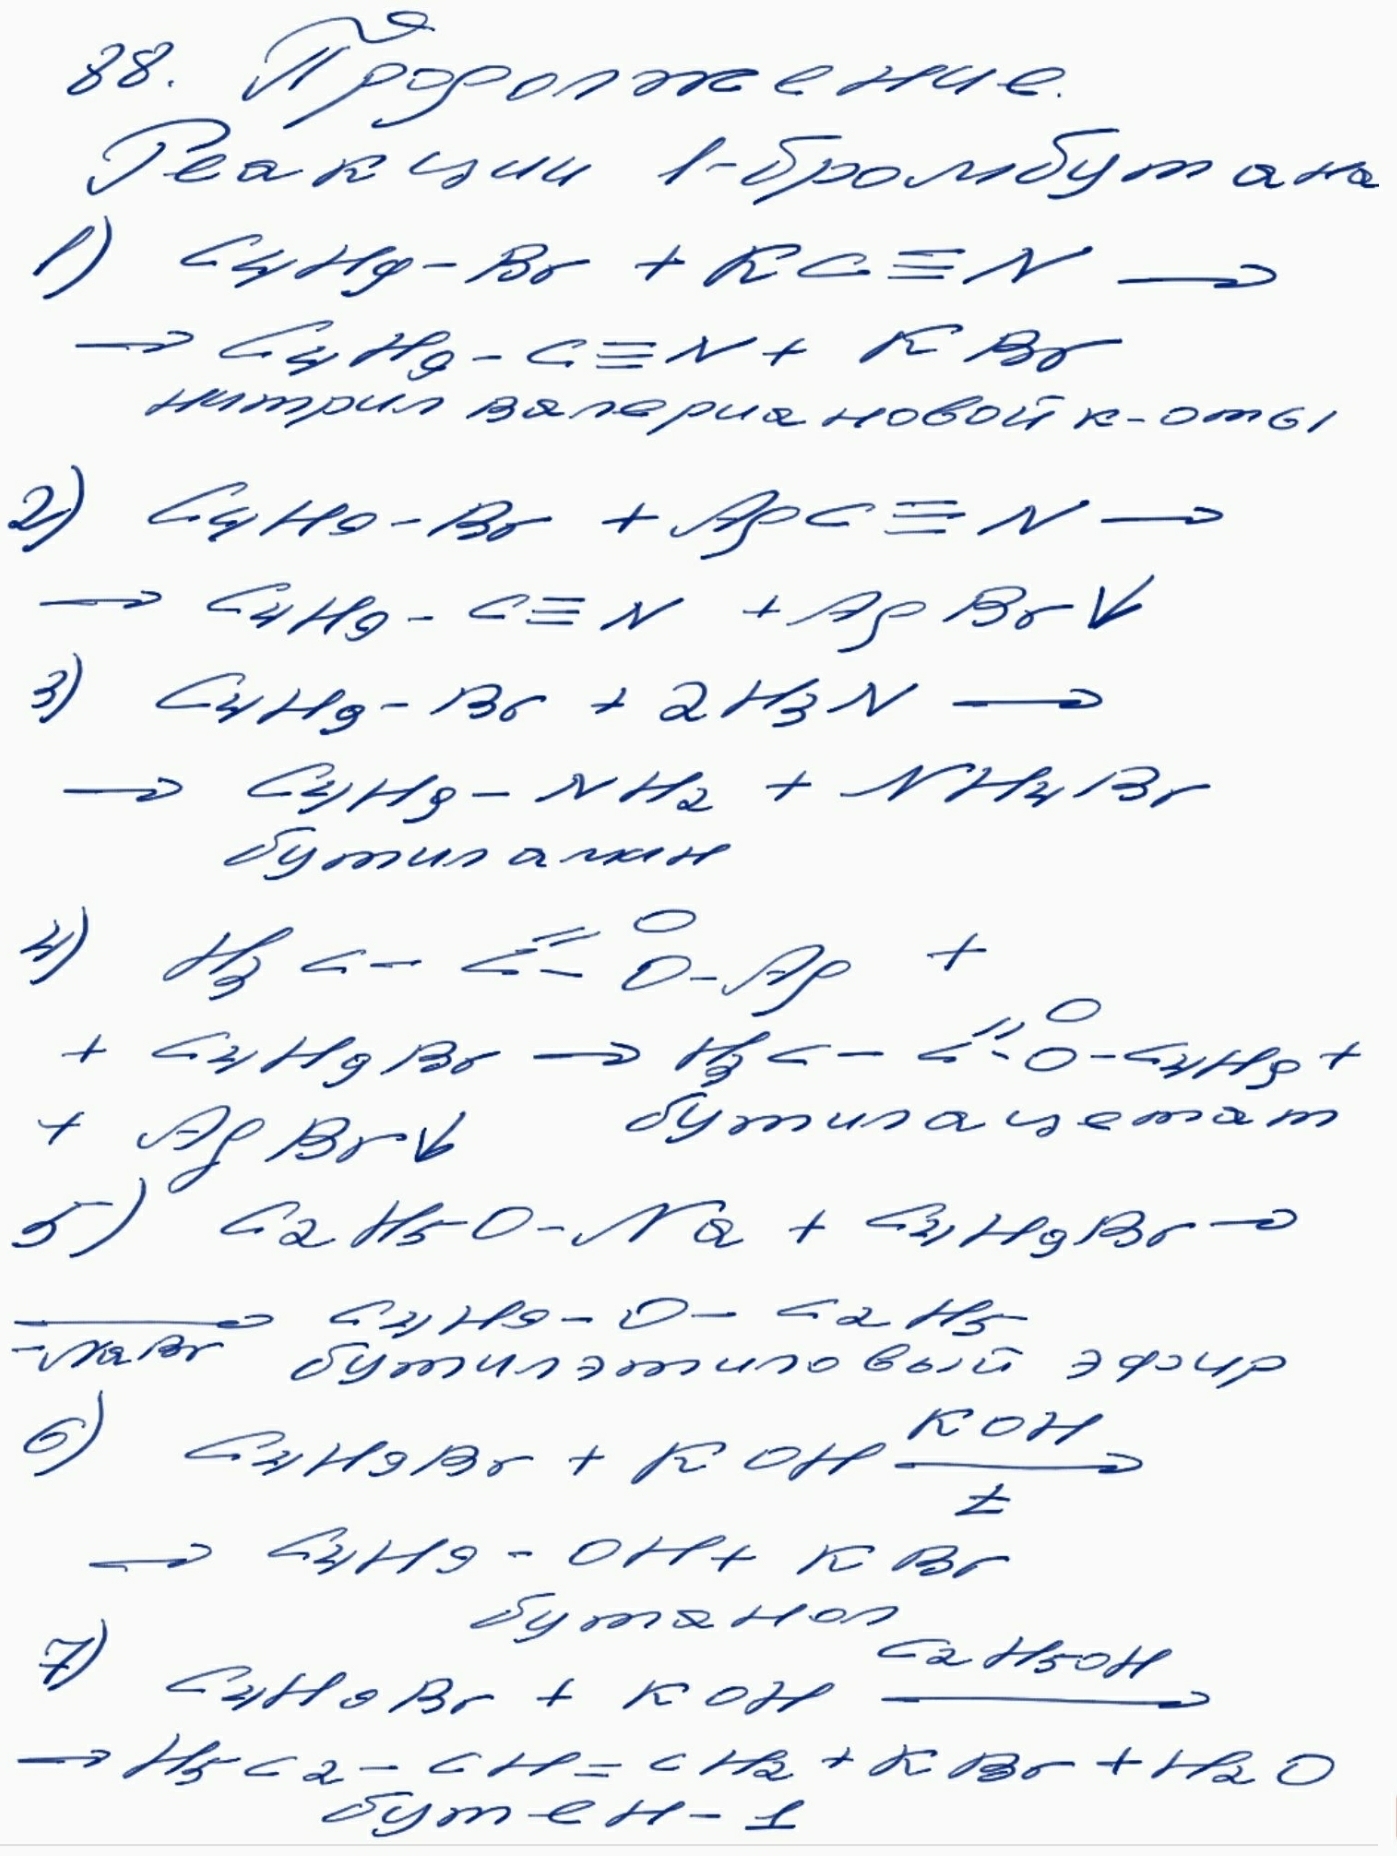 88. Продолжение.
Реакции 1-бромбутана
1) C4H9-Br + KC≡N →
→ C4H9-C≡N + KBr
нитрил валериановой к-оты
2) C4H9-Br + AgC≡N →
→ C4H9-C≡N + AgBr↓
3) C4H9-Br + 2H3N →
→ C4H9-NH2 + NH4Br
бутиламин
4) H3C-C(=O)-O-Ag +
+ C4H9Br → H3C-C(=O)-O-C4H9 +
+ AgBr↓ бутилацетат
5) C2H5O-Na + C4H9Br →
→ -NaBr C4H9-O-C2H5
бутилэтиловый эфир
6) C4H9Br + KOH KOH → t
→ C4H9-OH + KBr
бутанол
7) C4H9Br + KOH C2H5OH →
→ H5C2-CH=CH2 + KBr + H2O
бутен-1